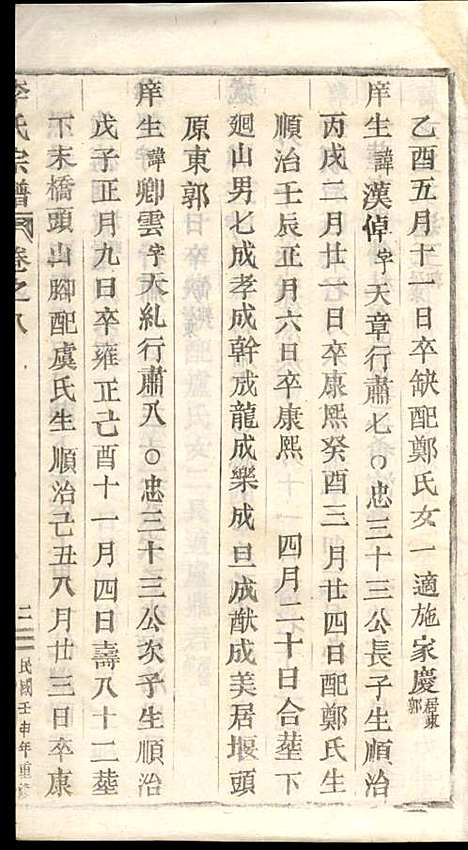 乙酉五月十一日卒缺配鄭氏女一適施家慶居東郭
庠生諱漢倬字天章行肅七○忠三十三公長子生順治
丙戌二月廿一日卒康熙癸酉三月廿四日配鄭氏生
順治壬辰正月六日卒康熙 四月二十日合塟下
廻山男七成孝成幹成龍成樂成旦成猷成美居堰頭
原東郭
庠生諱卿雲字天糺行肅八○忠三十三公次子生順治
戊子正月九日卒雍正己酉十一月四日壽八十二塟
下末橋頭山脚配虞氏生順治己丑八月廿三日卒康
李氏宗譜 卷之八 民國壬申年重修